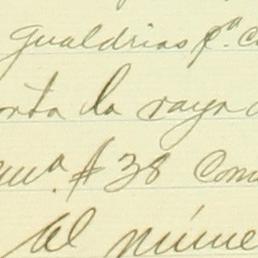 Gualdrias pª. c
onta la raya
ema. # 38 Com
al núme